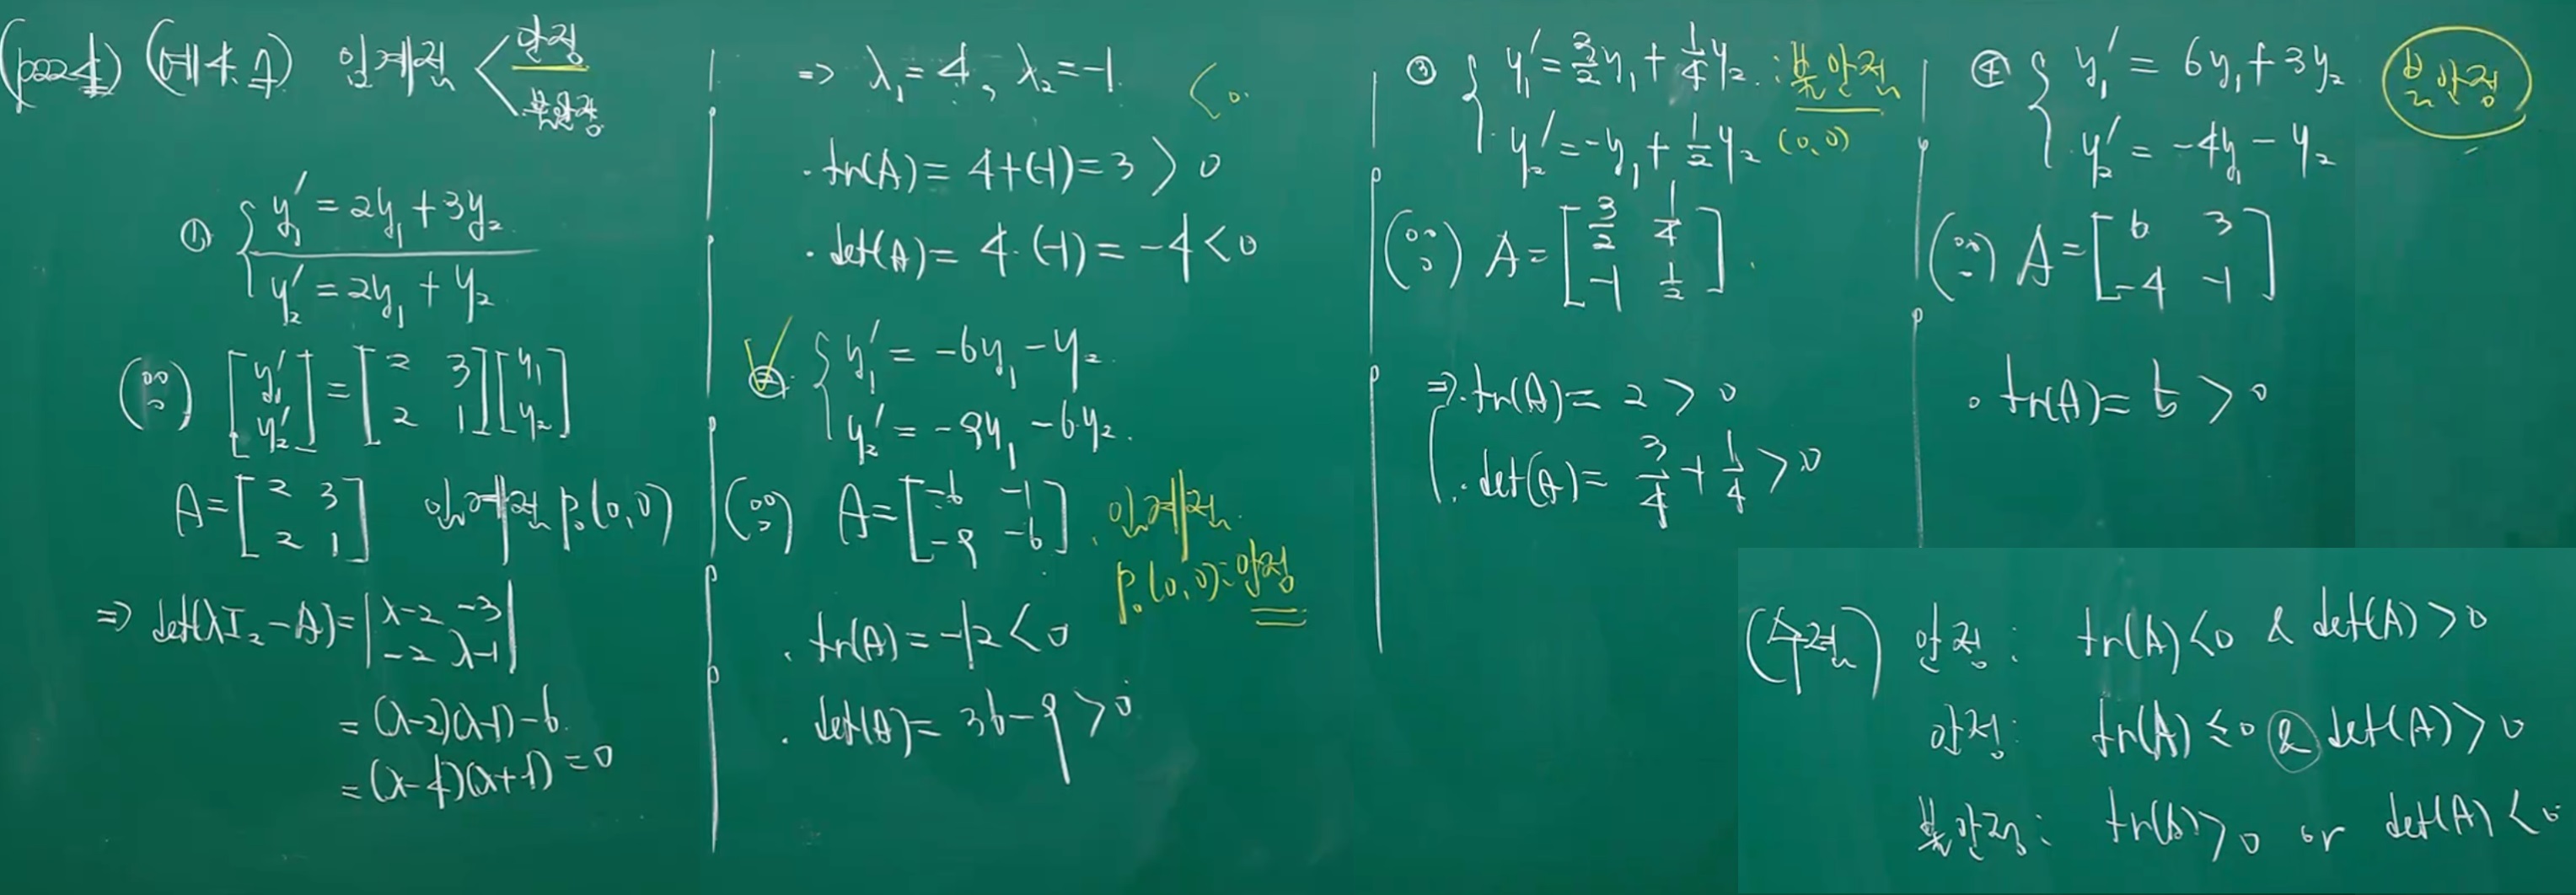 (p224) (예4.1) 임계점 < 안정
불안정
① { y₁' = 2y₁ + 3y₂
y₂' = 2y₁ + y₂
(∵) [y₁' y₂'] = [2 3 2 1][y₁ y₂]
A = [2 3 2 1] 임계점 P₀(0,0)
⇒ det(λI₂ - A) = |λ-2 -3 -2 λ-1|
= (λ-2)(λ-1) - 6
= (λ-4)(λ+1) = 0
⇒ λ₁ = 4, λ₂ = -1.
· tr(A) = 4+(-1) = 3 > 0
· det(A) = 4·(-1) = -4 < 0
② { y₁' = -6y₁ - y₂.
y₂' = -9y₁ - 6y₂.
(∵) A = [-6 -1 -9 -6]. 임계점
P₀(0,0): 안정
· tr(A) = -12 < 0
· det(A) = 36 - 9 > 0
③ { y₁' = 3/2 y₁ + 1/4 y₂. : 불안정
y₂' = -y₁ + 1/2 y₂ (0,0)
(∵) A = [3/2 1/4 -1 1/2].
⇒ · tr(A) = 2 > 0
· det(A) = 3/4 + 1/4 > 0
④ { y₁' = 6y₁ + 3y₂ 불안정
y₂' = -4y₁ - y₂
(∵) A = [6 3 -4 -1]
· tr(A) = 5 > 0
안정: tr(A) < 0 & det(A) > 0
안정: tr(A) ≤ 0 & det(A) > 0
불안정: tr(A) > 0 or det(A) < 0